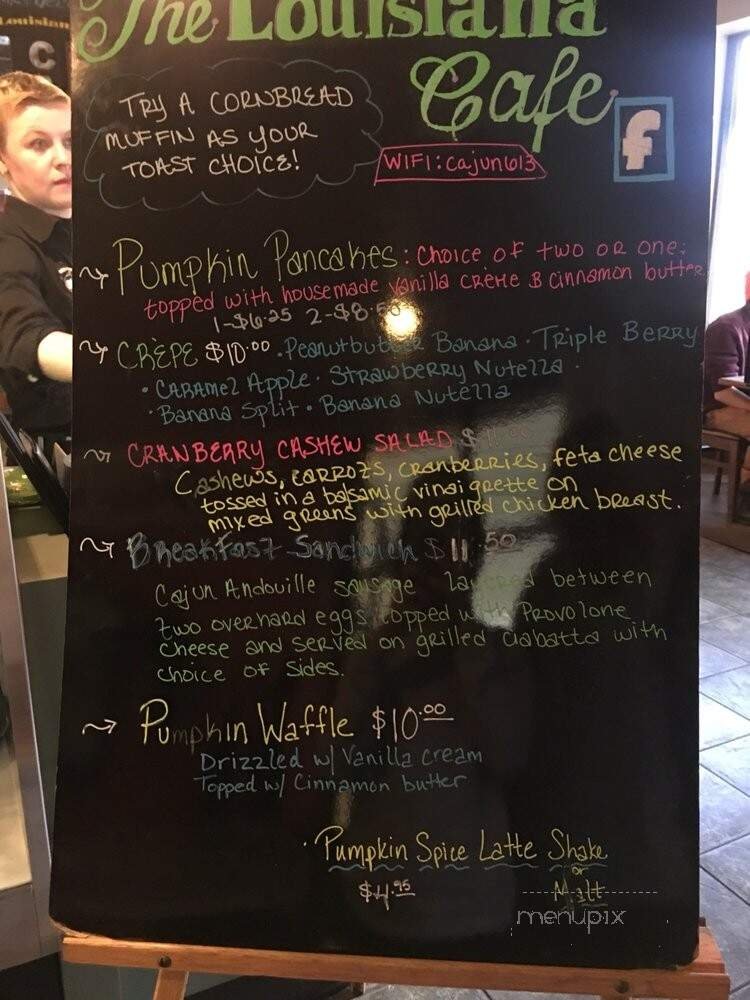 The Louisiana
Cafe
TRY A CORNBREAD
MUFFIN AS YOUR
TOAST CHOICE!
f
WIFI: cajun613
Pumpkin Pancakes: Choice of two or one:
topped with housemade vanilla crème & cinnamon butter
1-$6.25 2-$8.50
CREPE $10.00 · Peanutbutter Banana · Triple Berry
· Caramel Apple · Strawberry Nutella ·
· Banana Split · Banana Nutella
CRANBERRY CASHEW SALAD $
Cashews, carrots, cranberries, feta cheese
tossed in a balsamic vinaigrette on
mixed greens with grilled chicken breast.
Breakfast Sandwich $11.50
Cajun Andouille sausage layered between
two overhard eggs topped with Provolone
cheese and served on grilled ciabatta with
choice of sides.
Pumpkin Waffle $10.00
Drizzled w/ Vanilla cream
Topped w/ Cinnamon butter
· Pumpkin Spice Latte Shake
or
$4.95 Malt
menupix
C